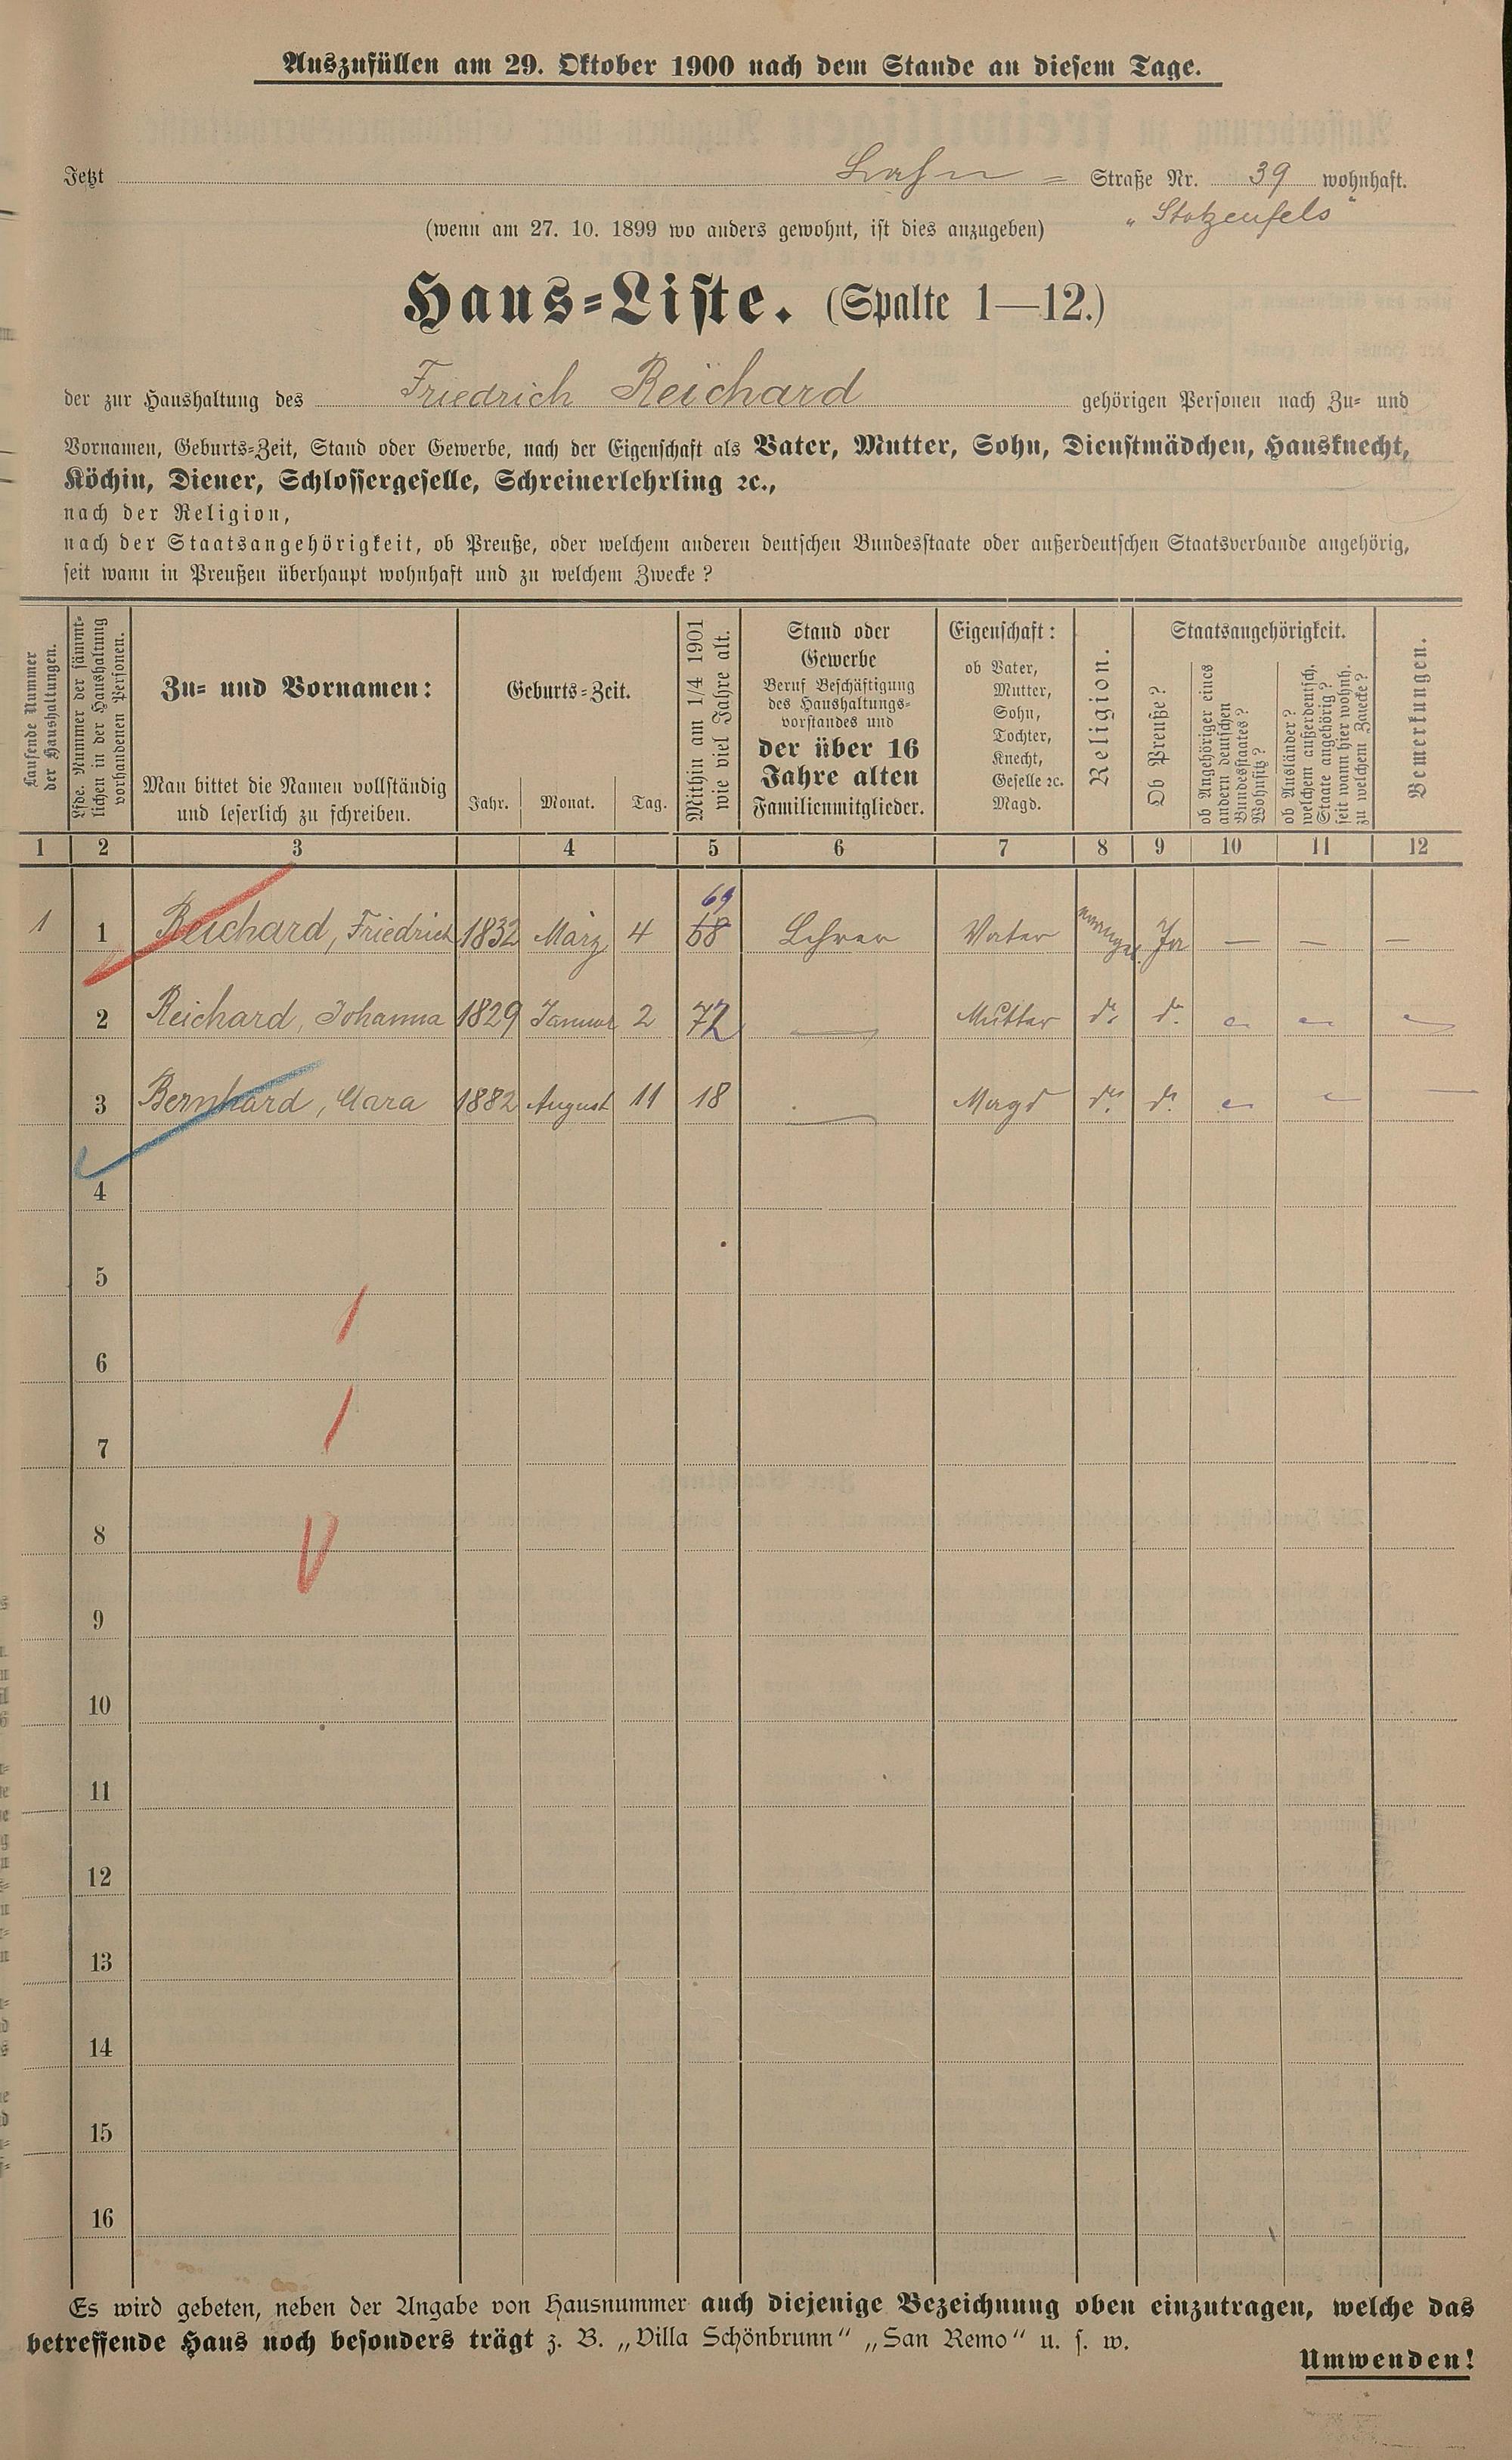 Auszufüllen am 29. Oktober 1900 nach dem Stande an diesem Tage.
Jetzt Lahn = Straße Nr. 39 wohnhaft.
(wenn am 27. 10. 1899 wo anders gewohnt, ist dies anzugeben) „Stolzenfels"
Haus=Liste. (Spalte 1—12.)
der zur Haushaltung des Friedrich Reichard gehörigen Personen nach Zu= und
Vornamen, Geburts=Zeit, Stand oder Gewerbe, nach der Eigenschaft als Vater, Mutter, Sohn, Dienstmädchen, Hausknecht,
Köchin, Diener, Schlossergeselle, Schreinerlehrling ꝛc.,
nach der Religion,
nach der Staatsangehörigkeit, ob Preuße, oder welchem anderen deutschen Bundesstaate oder außerdeutschen Staatsverbande angehörig,
seit wann in Preußen überhaupt wohnhaft und zu welchem Zwecke?
Laufende Nummer
der Haushaltungen.
Lfde. Nummer der sämmt=
lichen in der Haushaltung
vorhandenen Personen.
Zu= und Vornamen:
Man bittet die Namen vollständig
und leserlich zu schreiben.
Geburts=Zeit.
Jahr. Monat. Tag.
Mithin am 1/4 1901
wie viel Jahre alt.
Stand oder
Gewerbe
Beruf Beschäftigung
des Haushaltungs=
vorstandes und
der über 16
Jahre alten
Familienmitglieder.
Eigenschaft:
ob Vater,
Mutter,
Sohn,
Tochter,
Knecht,
Geselle ꝛc.
Magd.
Religion.
Staatsangehörigkeit.
Ob Preuße?
ob Angehöriger eines
andern deutschen
Bundesstaates?
Wohnsitz?
ob Ausländer?
welchem außerdeutsch.
Staate angehörig?
seit wann hier wohnh.
zu welchem Zwecke?
Bemerkungen.
1 2 3 4 5 6 7 8 9 10 11 12
69
1 1 Reichard, Friedrich 1832 März 4 68 Lehrer Vater evangel. Ja — — —
2 Reichard, Johanna 1829 Januar 2 72 — Mutter do. do. — — —
3 Bernhard, Clara 1882 August 11 18 — Magd do. do. — — —
4
5
6
7
8
9
10
11
12
13
14
15
16
Es wird gebeten, neben der Angabe von Hausnummer auch diejenige Bezeichnung oben einzutragen, welche das
betreffende Haus noch besonders trägt z. B. „Villa Schönbrunn" „San Remo" u. s. w.
Umwenden!